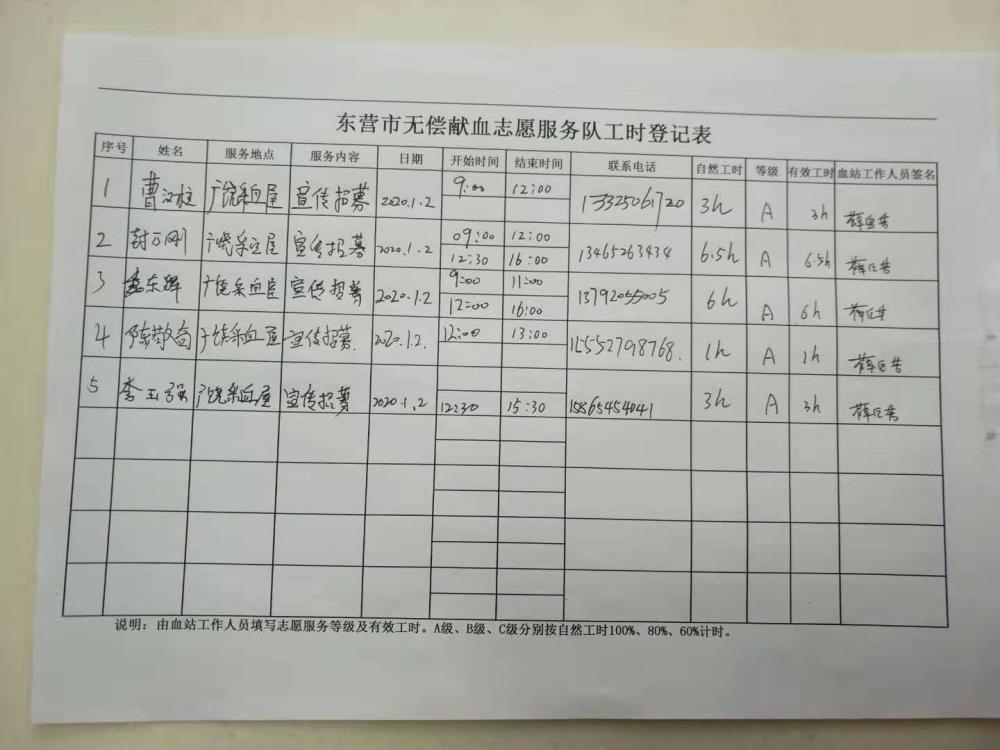 东营市无偿献血志愿服务队工时登记表
序号 姓名 服务地点 服务内容 日期 开始时间 结束时间 联系电话 自然工时 等级 有效工时 血站工作人员签名
1 曹 广饶采血屋 宣传招募 2020.1.2 9:00 12:00 13325061720 3h A 3h
2 广饶采血屋 宣传招募 2020.1.2 09:00 12:00 13465263434 6.5h A 6.5h
12:30 16:00
3 广饶采血屋 宣传招募 2020.1.2 9:00 11:00 13792055005 6h A 6h
12:00 16:00
4 陈敬 广饶采血屋 宣传招募 2020.1.2. 12:00 13:00 15552798768. 1h A 1h
5 李玉强 广饶采血屋 宣传招募 2020.1.2 12:30 15:30 15865454041 3h A 3h
说明：由血站工作人员填写志愿服务等级及有效工时。A级、B级、C级分别按自然工时100%、80%、60%计时。